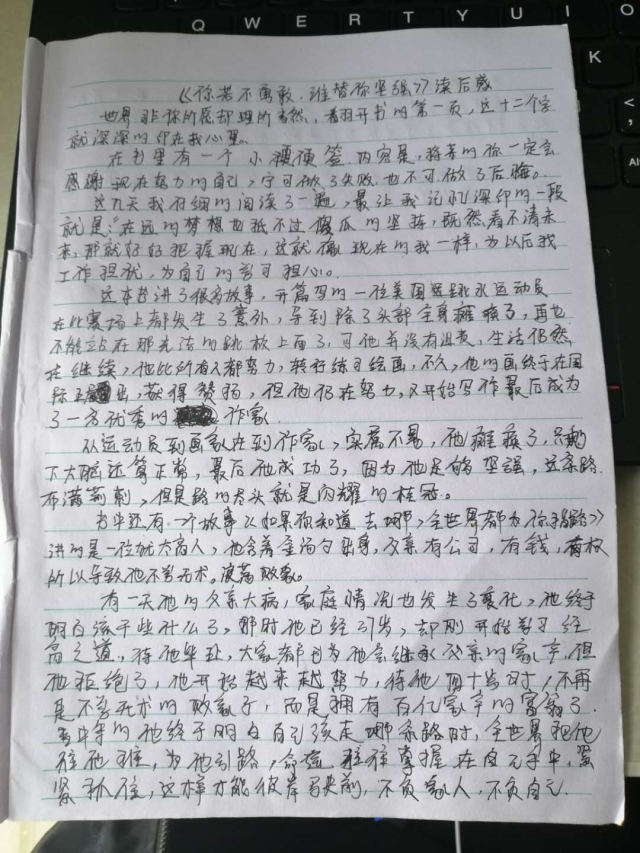 Q W E R T Y U I
K
《你若不勇敢，谁替你坚强》读后感
世界非你所愿却理所当然，翻开书的第一页，这十二个字
就深深的印在我心里。
在书里有一个小便签，内容是，将来的你一定会
感谢现在努力的自己，宁可做了失败，也不可做了后悔。
这几天我仔细的阅读了一遍，最让我记忆深印的一段
就是：在远的梦想也抵不过傻瓜的坚持，既然看不清未
来，那就好好把握现在，这就像现在的我一样，为以后找
工作担忧，为自己的学习担心。
这本书讲了很多故事，开篇写的一位美国运跳水运动员
在比赛场上却发生了意外，导到除了头部全身瘫痪了，再也
不能站在那光洁的跳板上面了，可他并没有沮丧，生活仍然
继续，他比所有人都努力，转行练习绘画，不久，他的画终于在国
际，获得赞扬，但他仍在努力，又开始写作最后成为
了一方优秀的作家
从运动员到画家在到作家，实属不易，他瘫痪了，只剩
下大脑还算正常，最后他成功了，因为他足够坚强，这条路
布满荆刺，但是路的尽头就是闪耀的桂冠。
书中还有一个故事《如果你知道去哪，全世界都为你让路》
讲的是一位犹太商人，他含着金汤勺出身，父亲有公司，有钱，有权
所以导致他不学无术。浪荡败家。
有一天他的父亲大病，家庭情况也发生了变化，他终于
明白该干些什么了，那时他已经，却刚开始学习经
商之道，待他毕业，大家都以为他会继承父亲的家产，但
他拒绝了，他开始越来越努力，待他四十岁时，不再
是不学无术的败家子，而是拥有百亿家产的富翁了。
当年的他终于明白自己该走哪条路时，全世界把他
往他推，为他引路，命运往往掌握在自己手中，紧
紧抓住，这样才能彼岸，不负家人，不负自己。